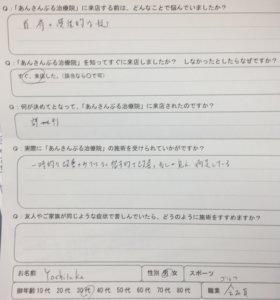 Q：「あんさんぶる治療院」に来店する前は、どんなことで悩んでいましたか？
首 肩の慢性的な
Q：「あんさんぶる治療院」を知ってすぐに来店しましたか？ しなかったとしたらなぜですか？
すぐ、来店した。（該当なら○で可）
Q：何が決めてとなって、「あんさんぶる治療院」に来店されたのですか？
Q：実際に「あんさんぶる治療院」の施術を受けられていかがですか？
一時的な改善
満足している
Q：友人やご家族が同じような症状で苦しんでいたら、どのように施術をすすめますか？
お名前 Yoshitaka 性別 男 女 スポーツ ゴルフ
御年齢 10代 20代 30代 40代 50代 60代 70代 80代 職業 会社員